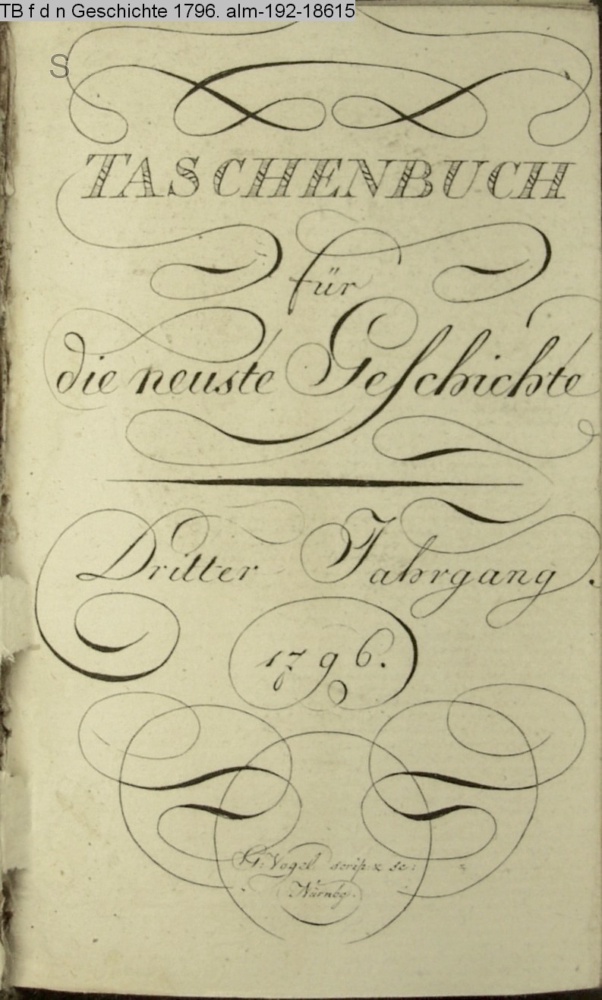 TB f d n Geschichte 1796. alm-192-18615
S
TASCHENBUCH
für
die neuste Geschichte
Dritter Jahrgang.
1796.
Vogel scrip. & sc:
Nürnbg.